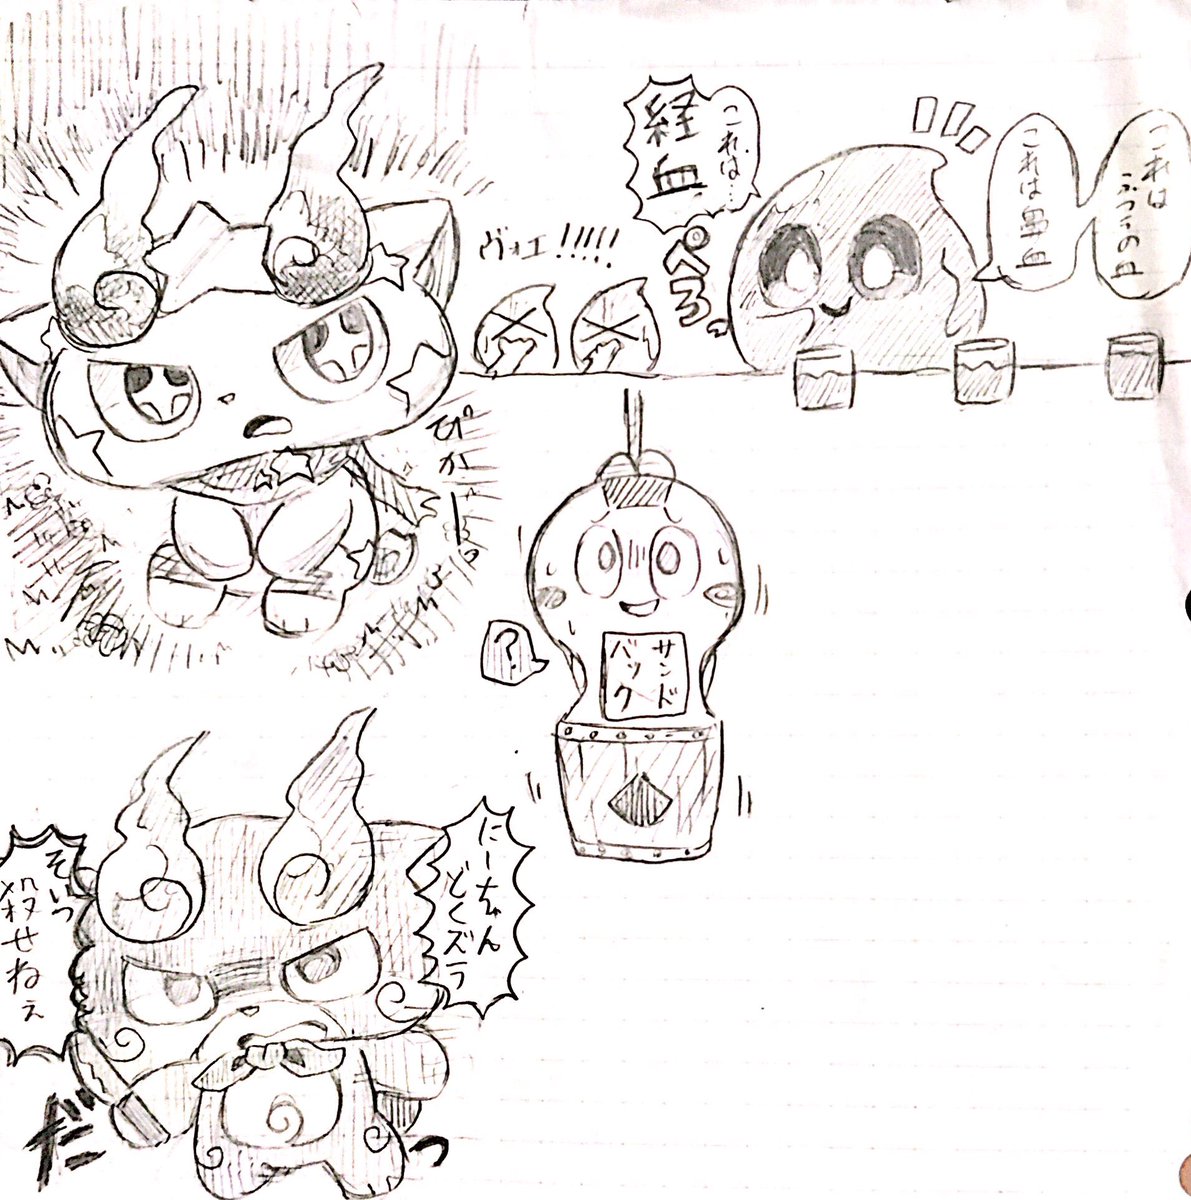 これは
ふつうの血
これは鼻血
これは…
経血
ペろ。
ヴォエ!!!!!
ぴかーー
サンド
バック
?
にーちゃん
どくズラ
そいつ
殺せねぇ
だっ